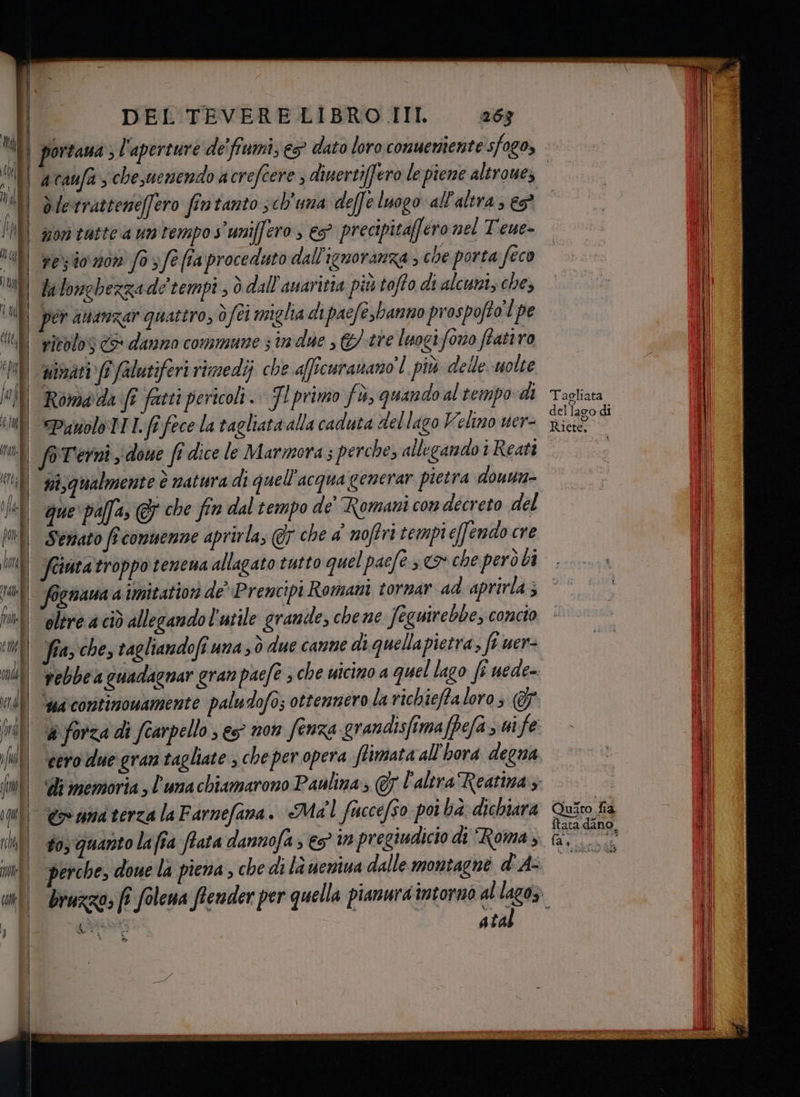 DEL TEVERE LIBRO III. 263
portaua, l'aperture de' fiumi, & dato loro conueniente sfogo,
a causa, che, uenendo a crescere, diuertissero le piene altroue,
ò le trattenessero fintanto, ch'una desse luogo all'altra, &
non tutte a un tempo s'unissero, & precipitassero nel Teue-
re, io non so, se sia proceduto dall'ignoranza, che porta seco
la longhezza de' tempi, ò dall'auaritia più tosto di alcuni, che,
per auanzar quattro, ò sei miglia di paese, hanno prosposto'l pe
ricolo, & danno commune; in due, & tre luogi sono stati ro
uinati sì salutiferi rimedij che assicurauano'l più delle uolte
Roma da sì fatti pericoli. Il primo fù, quando al tempo di
Pauolo III. si fece la tagliata alla caduta del lago Velino uer-
so Terni, doue si dice le Marmora; perche, allegando i Reati
ni, qualmente è natura di quell'acqua generar pietra douun-
que passa, & che sin dal tempo de' Romani con decreto del
Senato si conuenne aprirla, & che a' nostri tempi essendo cre
sciuta troppo teneua allagato tutto quel paese, & che però bi
sognaua a imitation de' Prencipi Romani tornar ad aprirla;
oltre a ciò allegando l'utile grande, che ne seguirebbe, concio
sia, che, tagliandosi una, ò due canne di quella pietra, si uer-
rebbe a guadagnar gran paese, che uicino a quel lago si uede-
ua continouamente paludoso; ottennero la richiesta loro, &
a forza di scarpello, & non senza grandissima spesa, ui fe
cero due gran tagliate, che per opera stimata all'hora degna
di memoria, l'una chiamarono Paulina, & l'altra Reatina,
& una terza la Farnesana. Ma'l successo poi hà dichiara
to, quanto la sia stata dannosa, & in pregiudicio di Roma,
perche, doue la piena, che di là ueniua dalle montagne d'A-
bruzzo, si soleua stender per quella pianura intorno al lago,
atal
Tagliata
del lago di
Riete.
Quãto sia
stata dãno
sa.